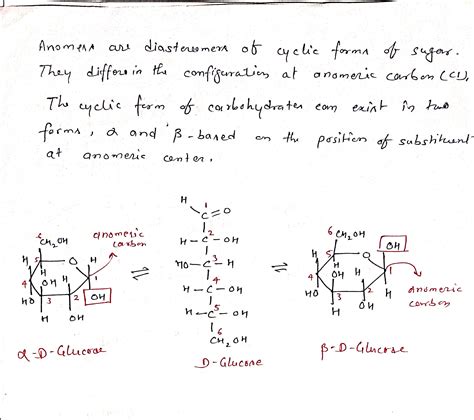 Anomers are diastereomers of cyclic forms of sugar.
They differs in the configuration at anomeric carbon (C1).
The cyclic form of carbohydrates can exist in two
forms, α and β - based on the position of substituent
at anomeric center.
H
1
C=O
2
H-C-OH
HO-C-H
3
H-C-OH
4
H-C-OH
5
6
CH2OH
D-Glucose
6
CH2OH
anomeric
carbon
H
5
O
H
H
4
OH
H
1
HO
3
2
OH
H
OH
α-D-Glucose
⇌
⇌
6
CH2OH
OH
H
5
O
H
4
OH
H
1
HO
3
2
H
H
OH
anomeric
carbon
β-D-Glucose